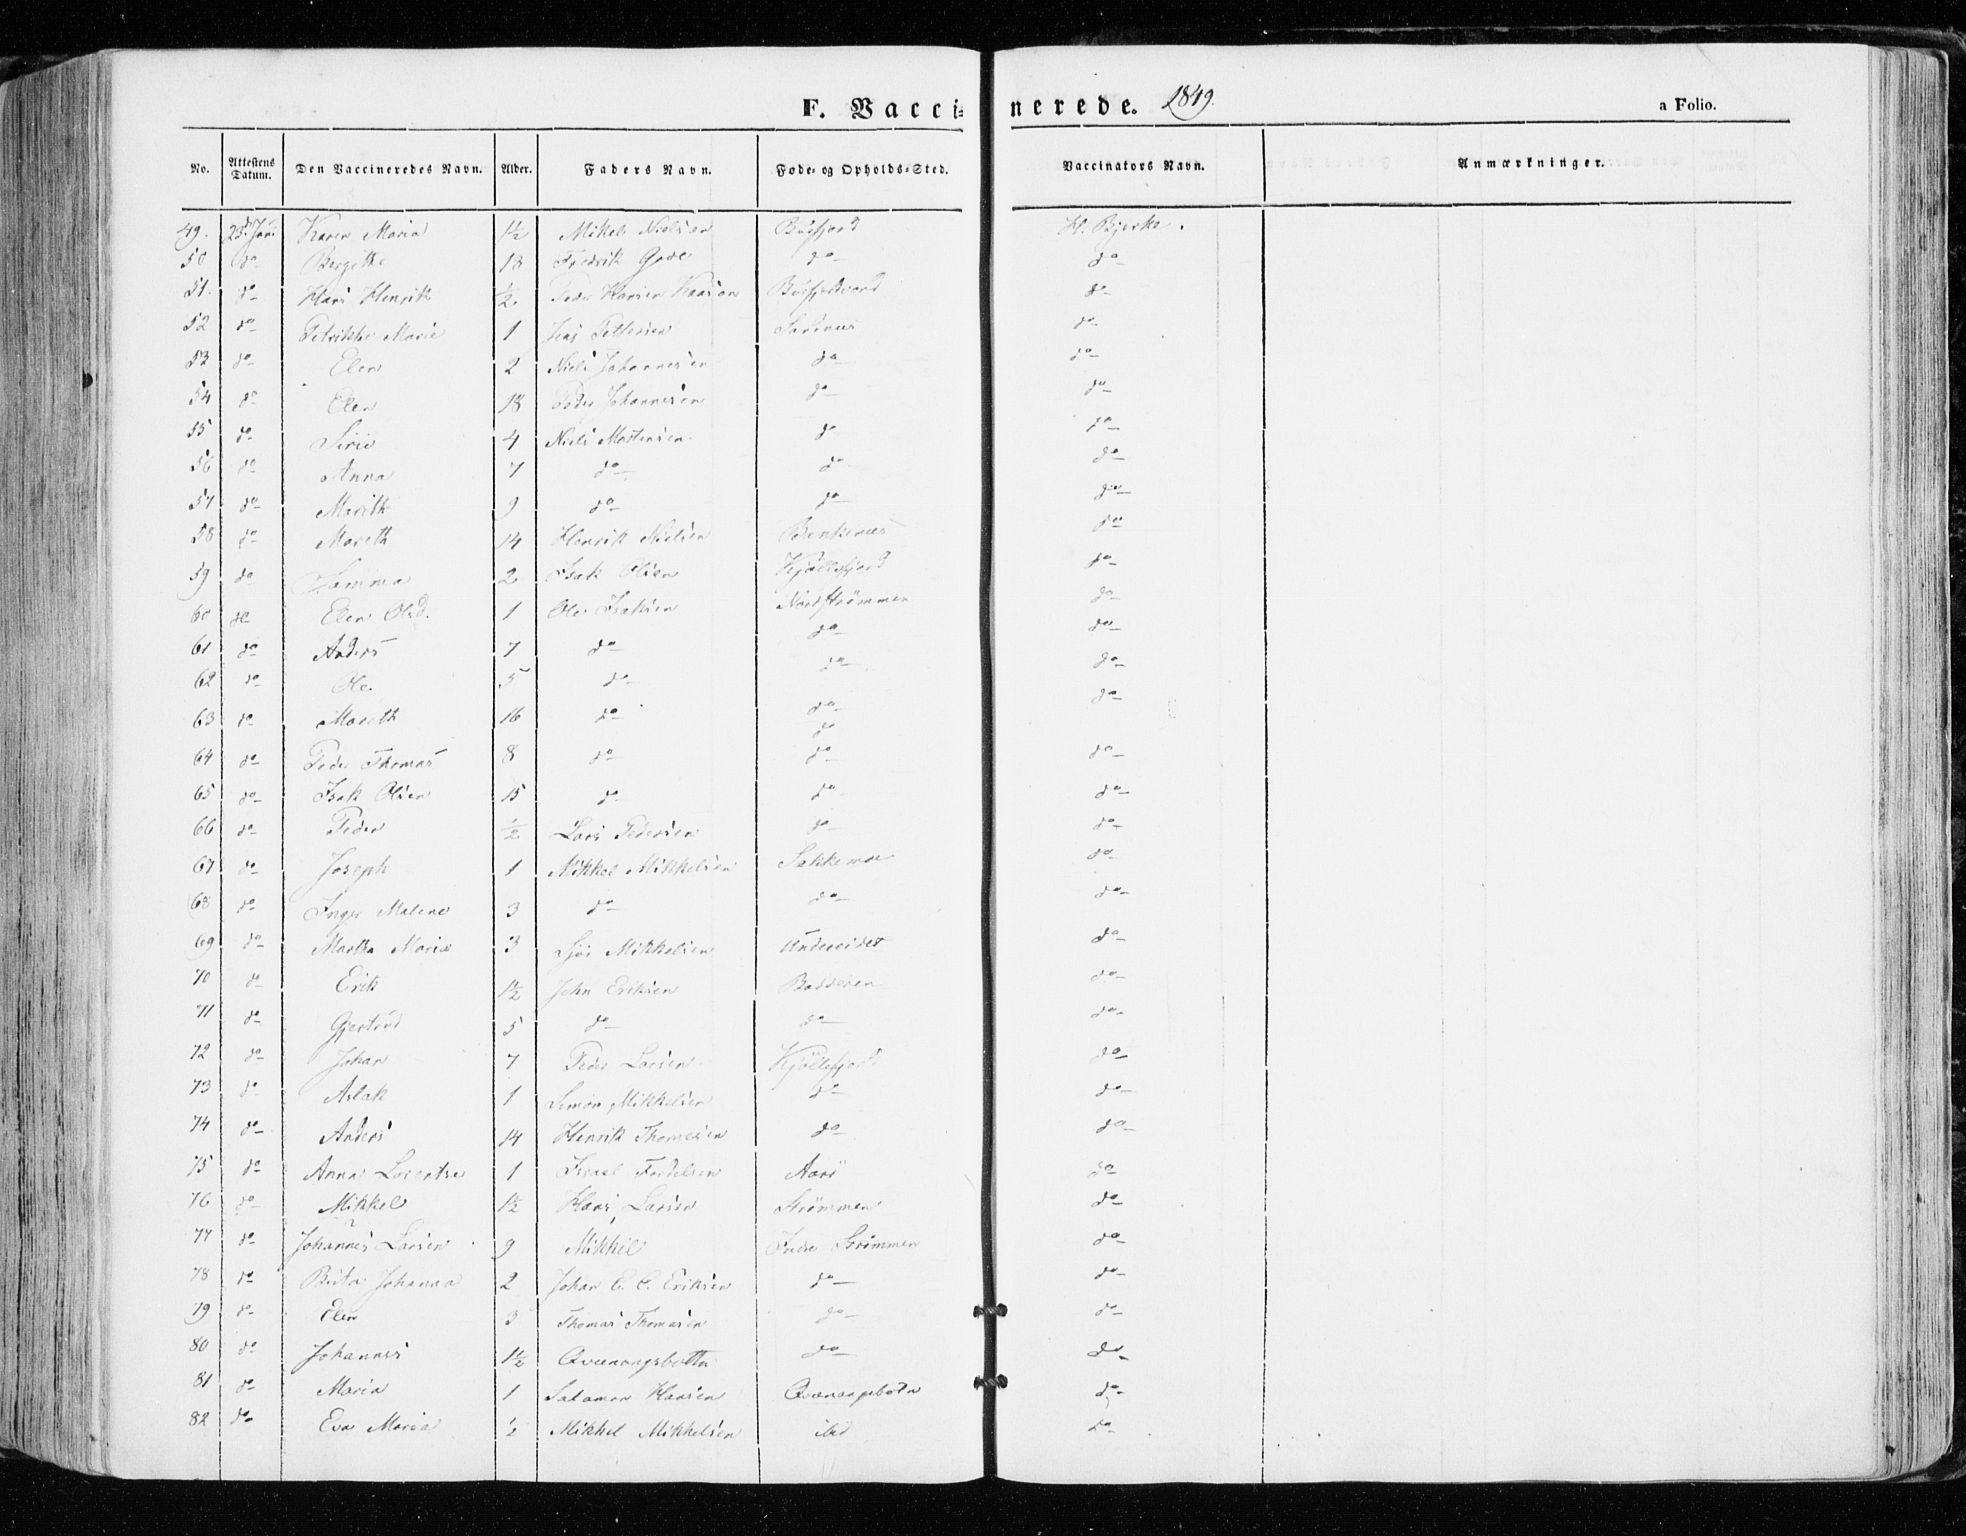 F. Vaccinerede. 1849.
a Folio.
No. Attestens Datum. Den Vaccineredes Navn. Alder. Faders Navn. Føde- og Opholds-Sted. Vaccinators Navn. Anmærkninger.
49. 23d Karen Maria 1½ Mikel Nielsen H. Bjerke.
50 do Bergithe 18 Fredrik do do
51. do Hans Henrik ½ Peder Hansen do
52 do Petrikke Marie 1 Jens Pettersen do
53 do Elen 2 Niels Johannesen do do
54 do Elen 18 Peder Johannesen do do
55 do Sirie 4 Niels Mortensen do do
56 do Anna 7 do do do
57 do Marith 9 do do do
58 do Mareth 14 Henrik Nielsen do
59 do 2 Isak Olsen Kjöllefjord do
60 do Elen Olsd. 1 Ole Isaksen Nordstrømmen do
61 do Anders 7 do do do
62 do Ole 5 do do do
63 do Mareth 16 do do do
do
64 do Peder Thomas 8 do do do
65 do Isak Olsen 15 do do do
66 do Peder ½ Lars Pedersen do do
67 do Joseph 1 Mikkel Mikkelsen do
68 do Inger Malene 3 do do do
69 do Martha Maria 3 Mikkelsen Undereidet do
70 do Erik 1½ John Eriksen Badderen do
71 do Gjertrud 5 do do do
72 do Johan 7 Peder Larsen Kjöllefjord do
73 do Aslak 1 Simon Mikkelsen do do
74 do Anders 14 Henrik Thomesen do do
75 do Anna Lorentse 1 Israel do
76 do Mikkel 1½ Hans Larsen Strömmen do
77 do Johannes Larsen 9 Mikkel Indre Strömmen do
78 do Johanna 2 Johan C. C. Eriksen do do
79 do Elen 3 Thomas Thomasen do do
80 do Johannes 1½ Qvænangsbotten do do
81 do Maria 1 Salamon Hansen Qvænangsbotn do
82 do Eva Maria ½ Mikkel Mikkelsen ibid do